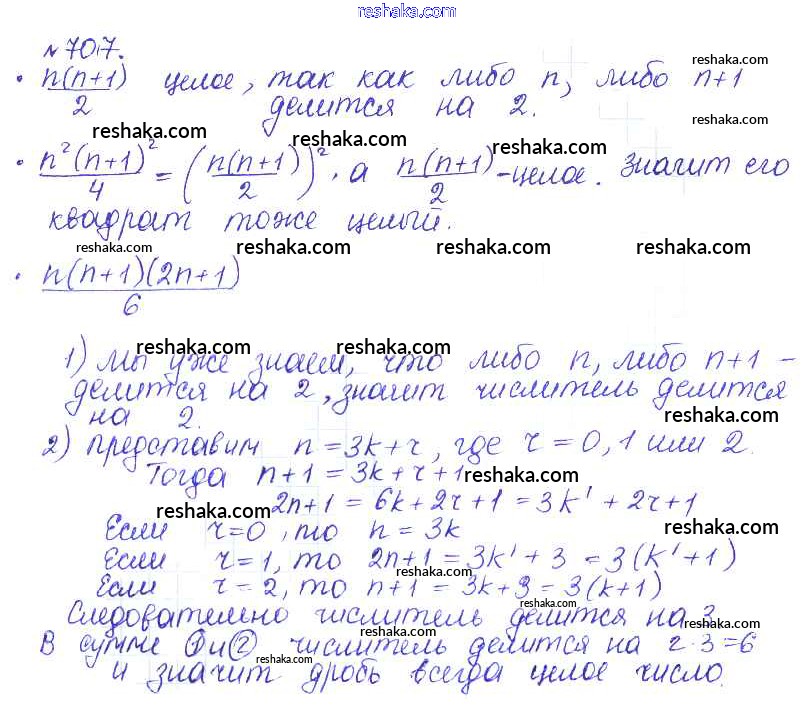 reshaka.com
№707.
• n(n+1)/2 целое, так как либо n, либо n+1 reshaka.com
делится на 2. reshaka.com
reshaka.com reshaka.com
• n²(n+1)²/4 = (n(n+1)/2)², а n(n+1)/2 - целое. Значит его
квадрат тоже целый.
reshaka.com reshaka.com reshaka.com
• n(n+1)(2n+1)/6
reshaka.com reshaka.com
1) Мы уже знаем, что либо n, либо n+1 -
делится на 2, значит числитель делится
на 2. reshaka.com
2) Представим n = 3k + r, где r = 0, 1 или 2.
Тогда n+1 = 3k + r + 1 reshaka.com
2n+1 = 6k + 2r + 1 = 3k' + 2r + 1
reshaka.com
Если r = 0, то n = 3k
Если r = 1, то 2n+1 = 3k' + 3 = 3(k'+1)
reshaka.com
Если r = 2, то n+1 = 3k + 3 = 3(k+1)
reshaka.com
Следовательно числитель делится на 3.
reshaka.com
В сумме ① и ② числитель делится на 2·3=6
reshaka.com
и значит дробь всегда целое число.
reshaka.com